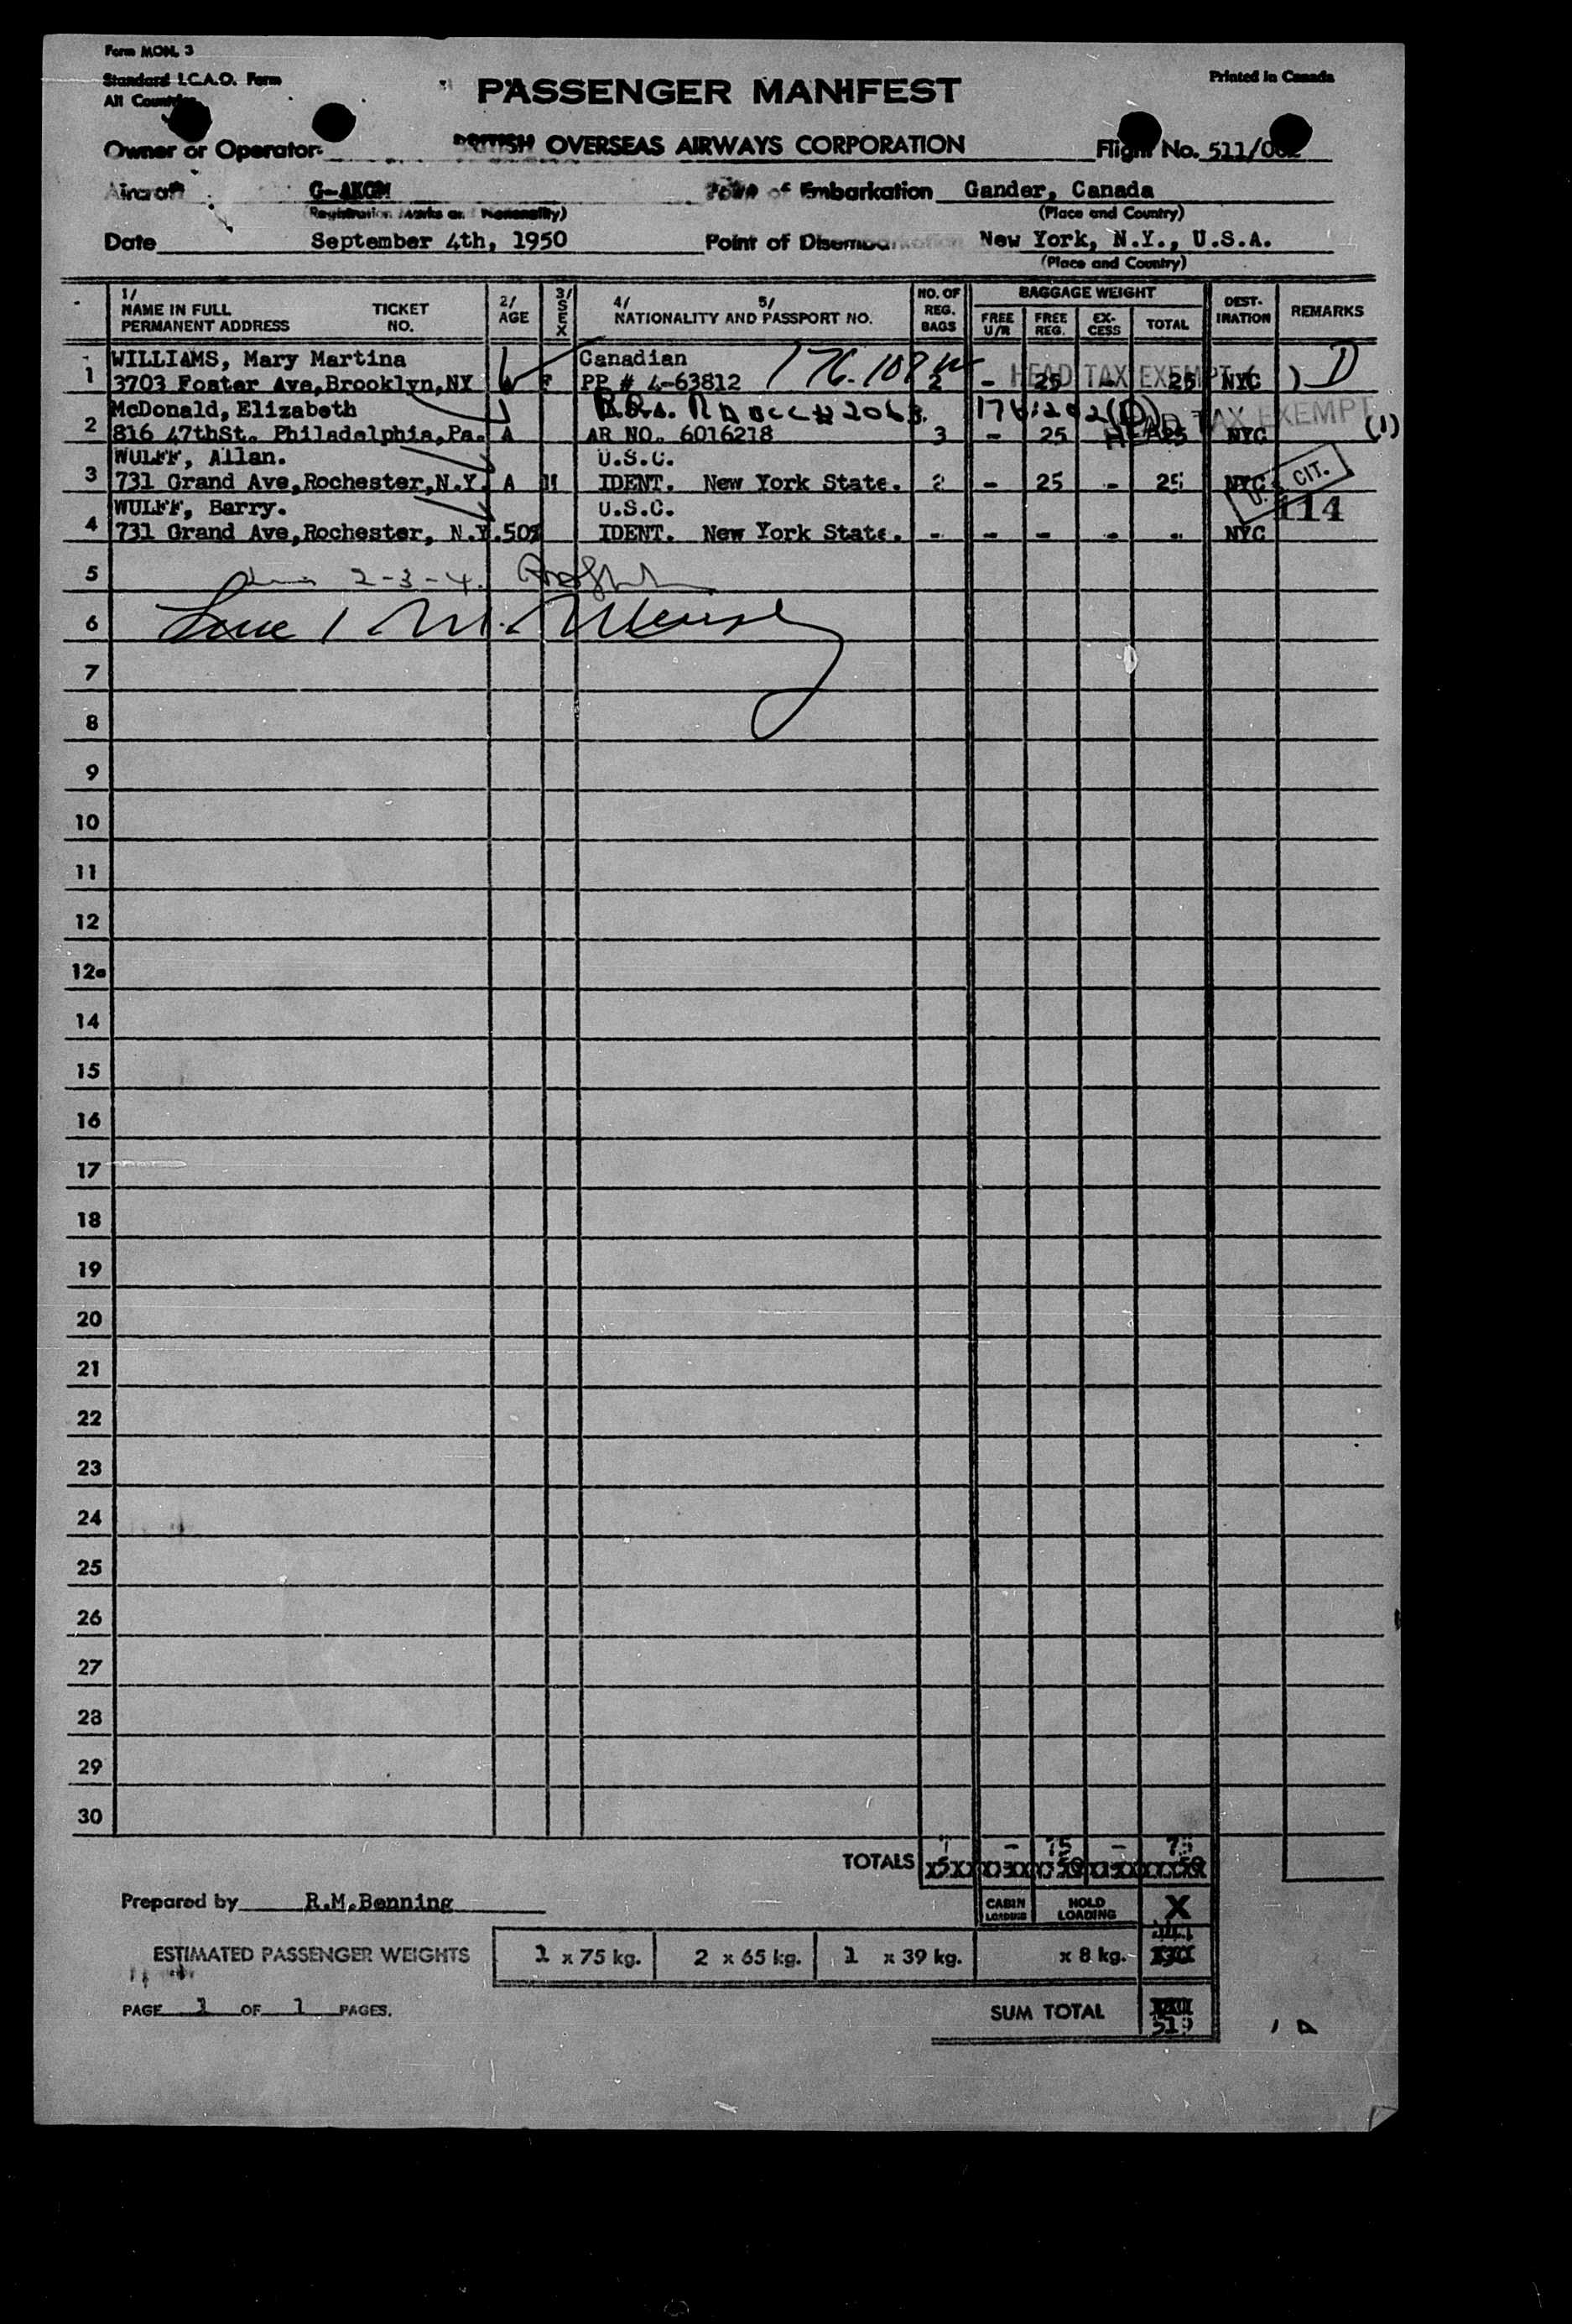 Form MON. 3
Standard I.C.A.O. Form
All Countries
Printed in Canada
PASSENGER MANIFEST
Owner or Operator BRITISH OVERSEAS AIRWAYS CORPORATION Flight No. 511/
Aircraft G-AKGM Point of Embarkation Gander, Canada
(Registration Marks and Nationality) (Place and Country)
Date September 4th, 1950 Point of Disembarkation New York, N.Y., U.S.A.
(Place and Country)
1/ NAME IN FULL PERMANENT ADDRESS TICKET NO. 2/ AGE 3/ SEX 4/ 5/ NATIONALITY AND PASSPORT NO. NO. OF REG. BAGS BAGGAGE WEIGHT FREE U/R FREE REG. EX-CESS TOTAL DEST-INATION REMARKS
WILLIAMS, Mary Martina Canadian 176.
1 3703 Foster Ave,Brooklyn,NY A F PP # 4-63812 2 - 25 - 25 NYC ) D
HEAD TAX EXEMPT
McDonald, Elizabeth
2 816 47thSt. Philadelphia,Pa. A AR NO. 6016218 3 - 25 25 NYC (1)
HEAD TAX EXEMPT
WULFF, Allan. U.S.C.
3 731 Grand Ave,Rochester,N.Y. A M IDENT. New York State. 2 - 25 - 25 NYC
U.S. CIT.
114
WULFF, Barry. U.S.C.
4 731 Grand Ave,Rochester, N.Y. 50% IDENT. New York State. - - - - - NYC
5 2-3-4.
6
7
8
9
10
11
12
12a
14
15
16
17
18
19
20
21
22
23
24
25
26
27
28
29
30
7 - 75 - 75
TOTALS
Prepared by R.M.Benning CABIN LOADING HOLD LOADING X
ESTIMATED PASSENGER WEIGHTS 1 x 75 kg. 2 x 65 kg. 1 x 39 kg. x 8 kg.
PAGE 1 OF 1 PAGES. SUM TOTAL
519